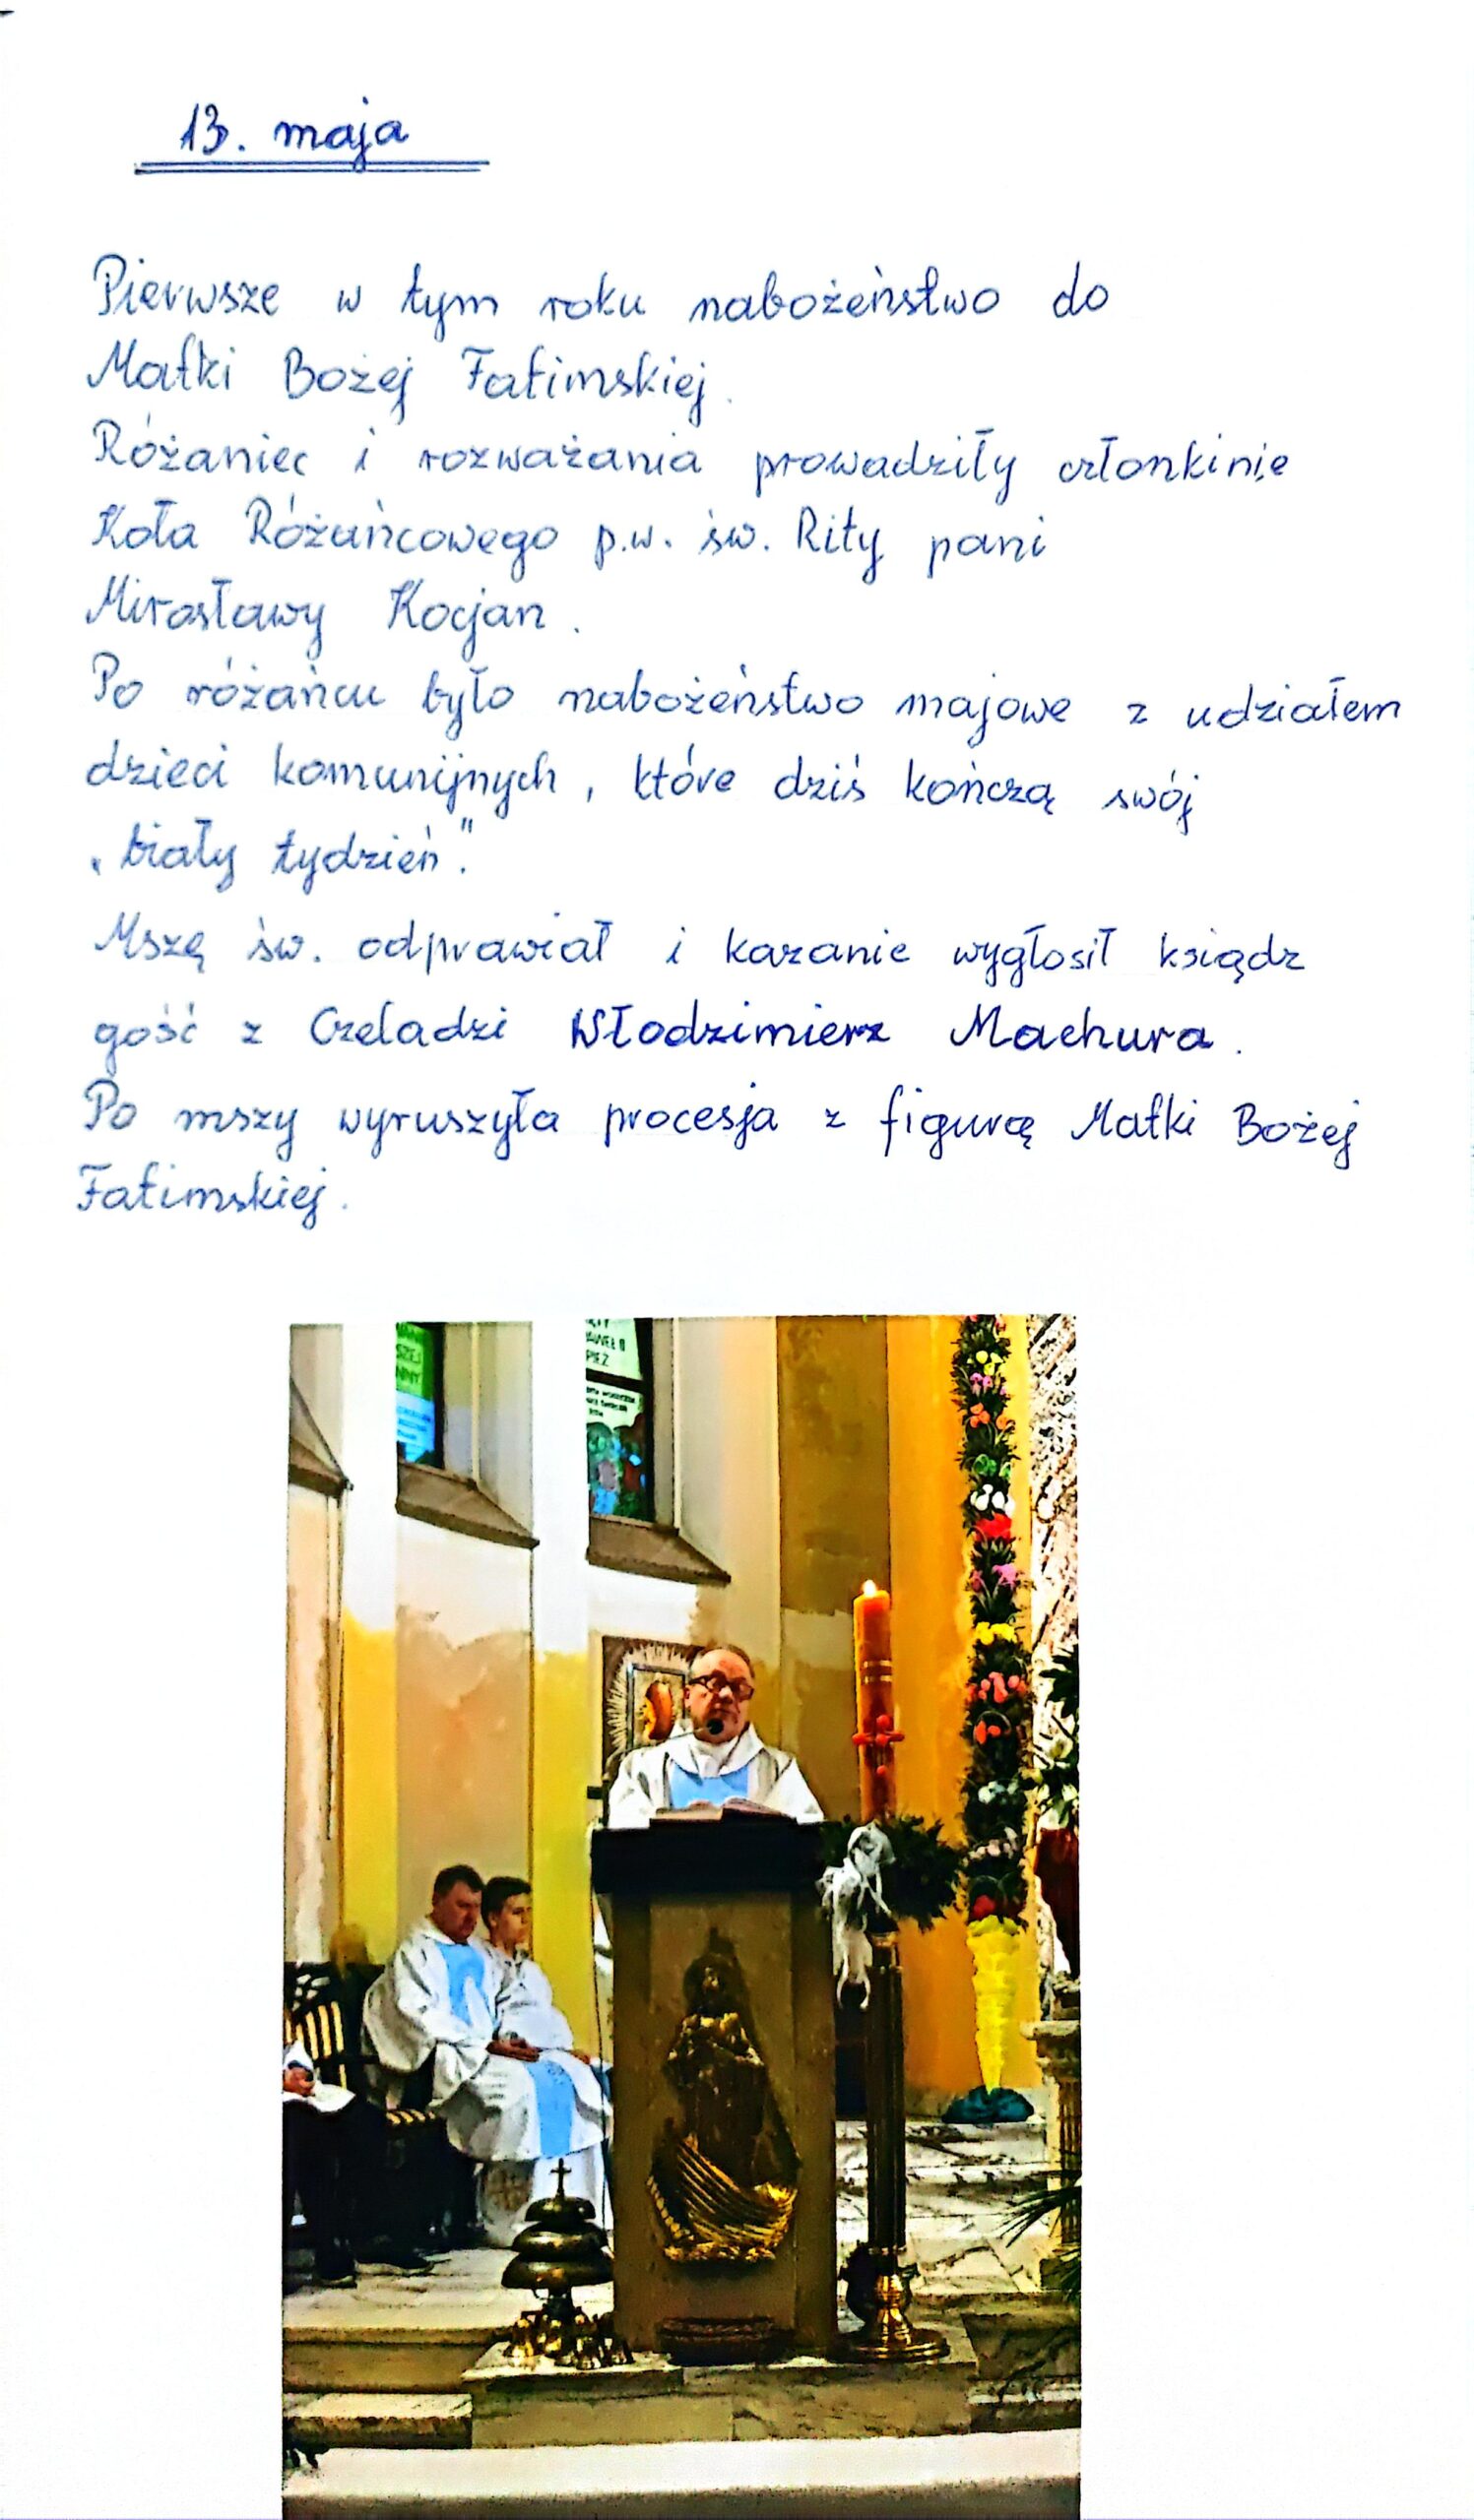 13. maja
Pierwsze w tym roku nabożeństwo do
Matki Bożej Fatimskiej.
Różaniec i rozważania prowadziły członkinie
Koła Różańcowego p.w. św. Rity pani
Mirosławy Kocjan.
Po różańcu było nabożeństwo majowe z udziałem
dzieci komunijnych, które dziś kończą swój
„biały tydzień".
Mszę św. odprawiał i kazanie wygłosił ksiądz
gość z Czeladzi Włodzimierz Machura.
Po mszy wyruszyła procesja z figurą Matki Bożej
Fatimskiej.
SZEJ
NNY
AWEŁ II
PIEŻ